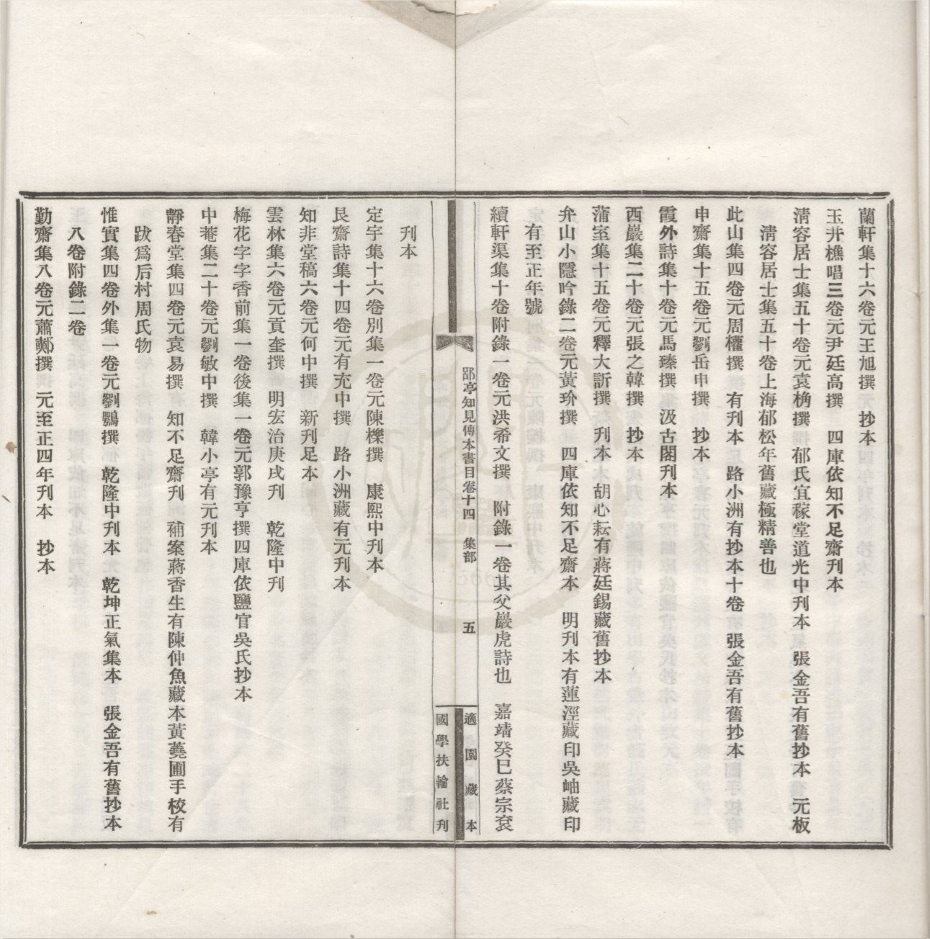 蘭軒集十六卷元王旭撰　抄本
玉井樵唱三卷元尹廷高撰　四庫依知不足齋刊本
清容居士集五十卷元袁桷撰　郁氏宜稼堂道光中刊本　張金吾有舊抄本　元板
清容居士集五十卷上海郁松年舊藏極精善也
此山集四卷元周權撰　有刊本　路小洲有抄本十卷　張金吾有舊抄本
申齋集十五卷元劉岳申撰　抄本
霞外詩集十卷元馬臻撰　汲古閣刊本
西巖集二十卷元張之韓撰　抄本
蒲室集十五卷元釋大訢撰　刊本　胡心耘有蔣廷錫藏舊抄本
弁山小隱吟錄二卷元黃玠撰　四庫依知不足齋本　明刊本有蓮涇藏印吳岫藏印
　有至正年號
續軒渠集十卷附錄一卷元洪希文撰　附錄一卷其父巖虎詩也　嘉靖癸巳蔡宗兗
郘亭知見傳本書目卷十四　集部　五
適園藏本
國學扶輪社刊
刊本
定宇集十六卷別集一卷元陳櫟撰　康熙中刊本
艮齋詩集十四卷元有充中撰　路小洲藏有元刊本
知非堂稿六卷元何中撰　新刊足本
雲林集六卷元貢奎撰　明宏治庚戌刊　乾隆中刊
梅花字字香前集一卷後集一卷元郭豫亨撰四庫依鹽官吳氏抄本
中菴集二十卷元劉敏中撰　韓小亭有元刊本
靜春堂集四卷元袁易撰　知不足齋刊　補案蔣香生有陳仲魚藏本黃蕘圃手校有
跋爲后村周氏物
惟實集四卷外集一卷元劉鶚撰　乾隆中刊本　乾坤正氣集本　張金吾有舊抄本
八卷附錄二卷
勤齋集八卷元蕭𣂏撰　元至正四年刊本　抄本